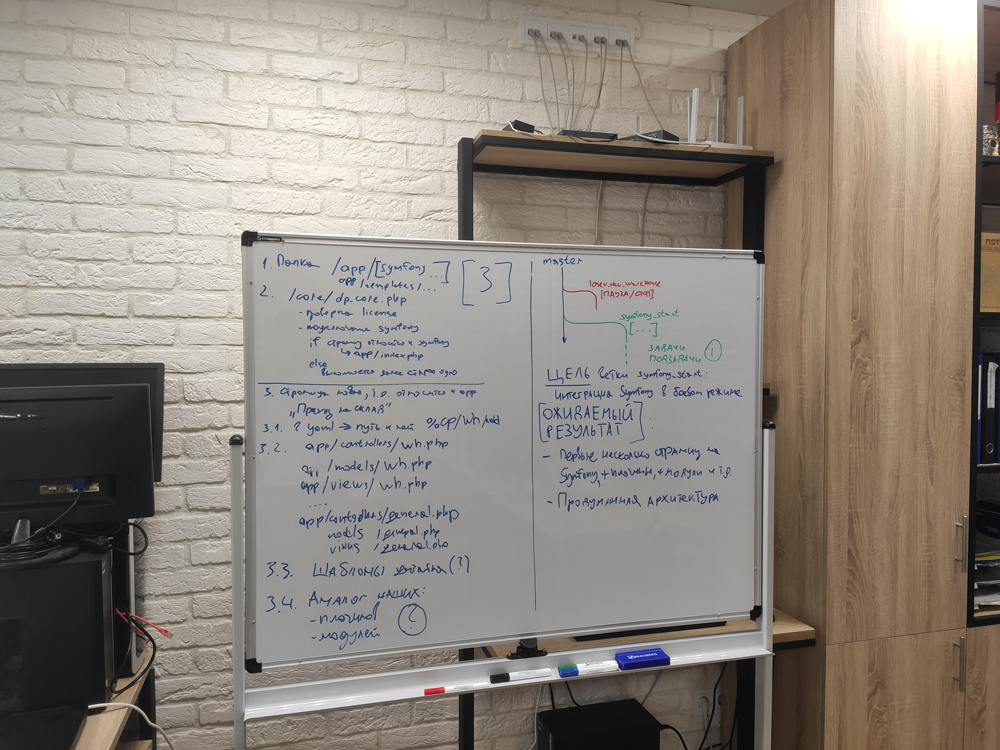 1. Папка /app/[symfony ...]
app/templates/...
[3]
2. /core/dp_core.php
- проверка license
- подключение symfony
if страницу относится к symfony
↳ app/index.php
else
выполняется далее старое ядро
3. Страница новая, т.е. относится к app
"Приход на склад"
3.1. yaml → путь к ней %cp/wh/add
3.2. app/controllers/wh.php
app/models/wh.php
app/views/wh.php
....
app/controllers/general.php
models /general.php
views /general.php
3.3. Шаблоны дизайна (?)
3.4. Аналог наших:
- плагинов
- модулей
?
master
[ПАУЗА/СТОП]
symfony_start
[...]
ЗАДАЧИ
ПОДЗАДАЧИ
ЦЕЛЬ ветки symfony_start:
интеграция Symfony в боевом режиме
[ОЖИДАЕМЫЙ
РЕЗУЛЬТАТ]:
- Первые несколько страниц на
Symfony + плагины, + модули и т.д.
- Продуманная архитектура